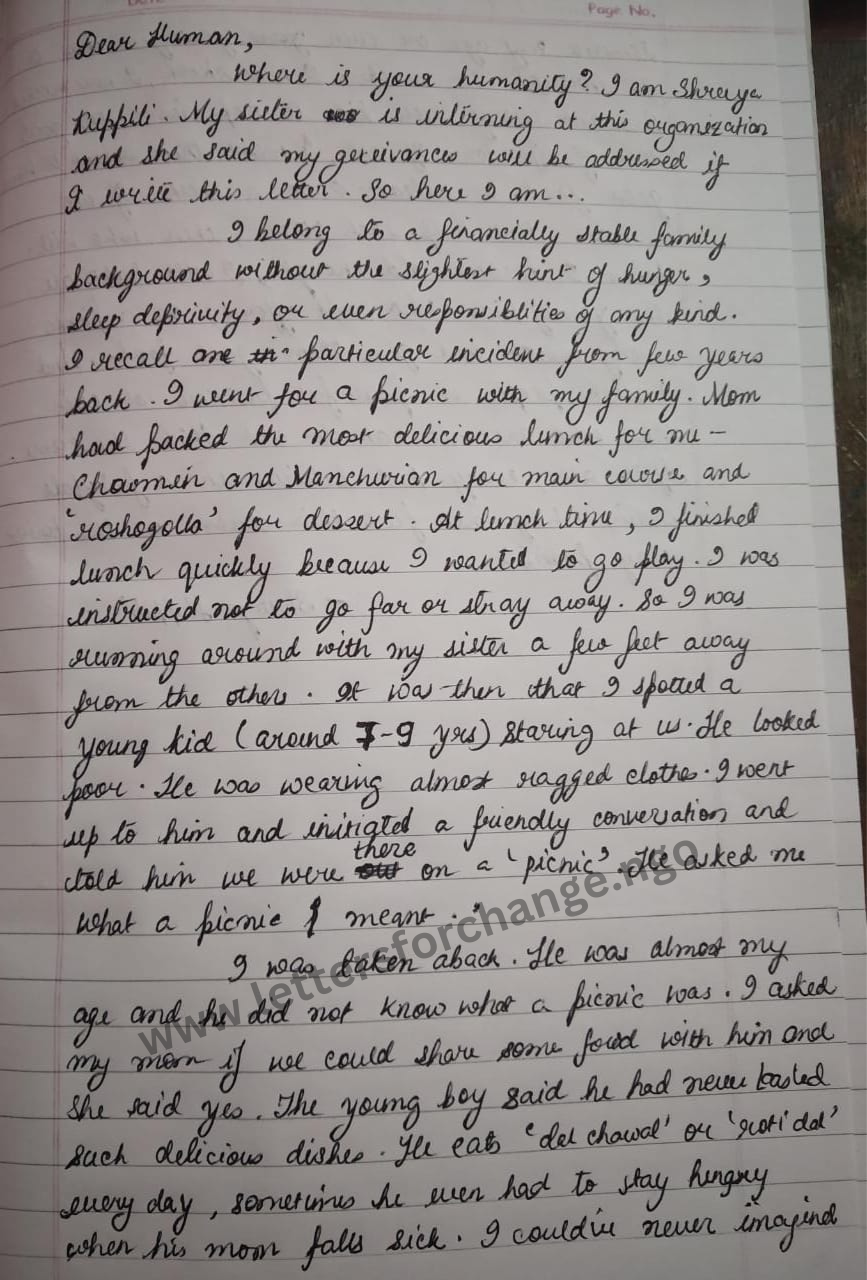 Page No.
Dear Human,
Where is your humanity? I am Shreya
Kuppili. My sister is interning at this organization
and she said my greivances will be addressed if
I write this letter. So here I am...
I belong to a financially stable family
background without the slightest hint of hunger,
sleep deprivity, or even responsiblities of any kind.
I recall one particular incident from few years
back. I went for a picnic with my family. Mom
had packed the most delicious lunch for me -
Chowmein and Manchurian for main course and
'roshogolla' for dessert. At lunch time, I finished
lunch quickly because I wanted to go play. I was
instructed not to go far or stray away. So I was
running around with my sister a few feet away
from the others. It was then that I spotted a
young kid (around 7-9 yrs) staring at us. He looked
poor. He was wearing almost ragged clothes. I went
up to him and initiated a friendly conversation and
told him we were there on a 'picnic'. He asked me
what a picnic meant.
I was taken aback. He was almost my
age and he did not know what a picnic was. I asked
my mom if we could share some food with him and
she said yes. The young boy said he had never tasted
such delicious dishes. He eats 'dal chawal' or 'roti dal'
every day, sometimes he even had to stay hungry
when his mom falls sick. I could've never imagined
www.lettersforchange.ngo